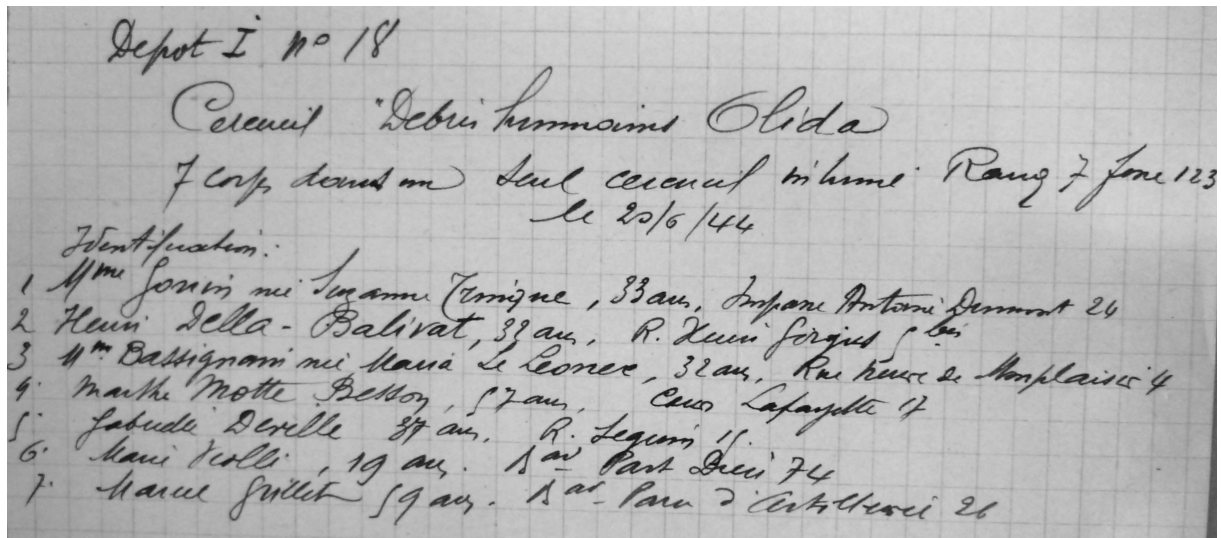 Depot I no 18
Cercueil "Debris humains Olida
7 corps dans un seul cercueil inhumé Rang 7 fosse 123
le 20/6/44
Identification:
1 Mme née Suzanne, 33 ans, Impasse Antoine Dumont 26
2 Henri Della-Balivat, 32 ans, R. Henri bis
3 Mme Bassignani née Maria Le Leonec, 32 ans, Rue de Monplaisir 4
4. Marthe Motte Besson, 57 ans, Cours Lafayette 17
5. Deville 37 ans. R. Seguin 15.
6. Marie, 19 ans. Bd Part Dieu 74
7. Marcel Grillet 59 ans. Parc d'Artillerie 26